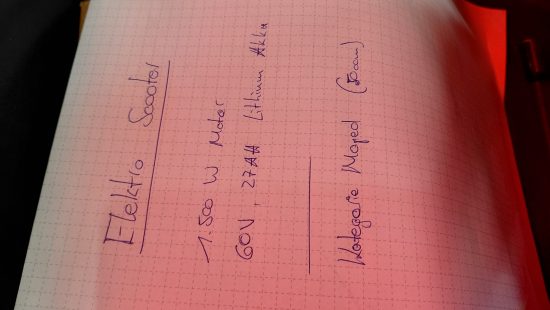 Elektro Scooter
1.500 W Motor
60V, 27AH Lithium Akku
Kategorie Moped (50ccm)